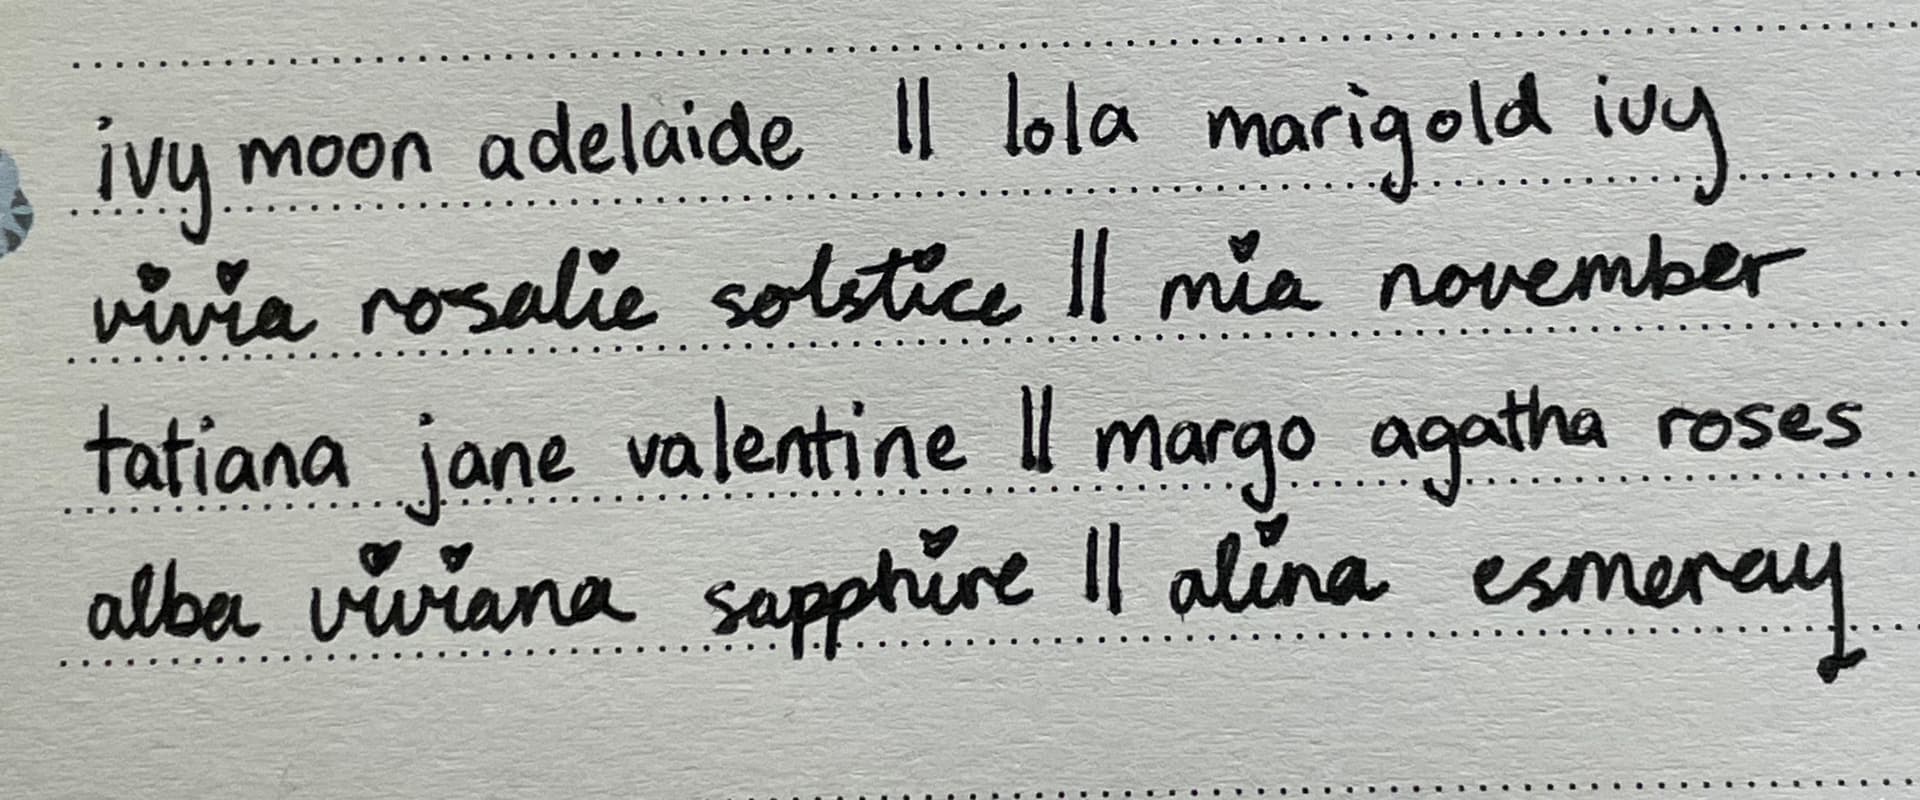 ivy moon adelaide || lola marigold ivy
vivia rosalie solstice || mia november
tatiana jane valentine || margo agatha roses
alba viviana sapphire || alina esmeray